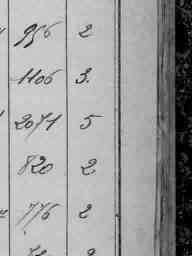 956 2
1106 3.
2071 5
820 2
776 2